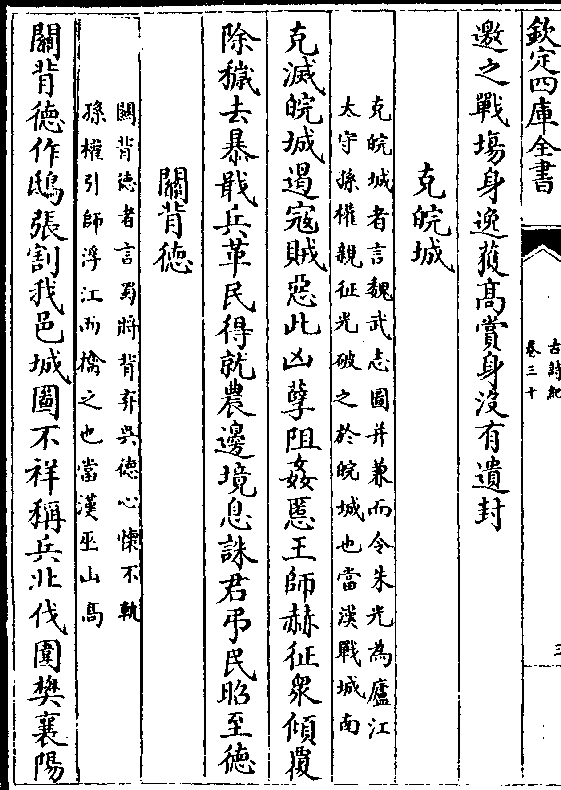 欽定四庫全書
古詩紀
卷三十
三
邀之戰塲身逸獲高賞身沒有遺封
克皖城
克皖城者言魏武志圖并兼而令朱光為廬江
太守孫權親征光破之於皖城也當漢戰城南
克滅皖城遏寇賊惡此凶孽阻姦慝王師赫征衆傾覆
除穢去暴戢兵革民得就農邊境息誅君弔民昭至德
關背德
關背德者言蜀將背棄吳德心懷不軌
孫權引師浮江而擒之也當漢巫山高
關背德作鴟張割我邑城圖不祥稱兵北伐圍樊襄陽